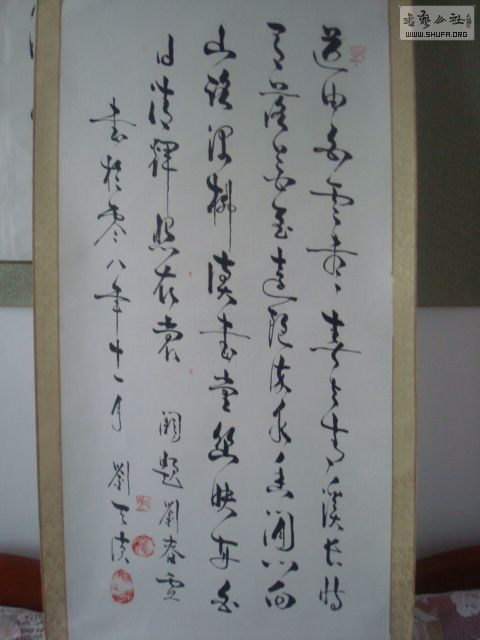 書藝公社
WWW.SHUFA.ORG
道由白雲盡春與青溪長時
有落花至遠隨流水香閒門向
山路深柳讀書堂幽映每白
日清輝照衣裳 闕題劉眘虛
書於零八年十一月 劉